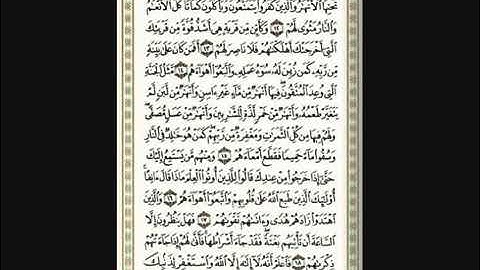 تحتها الأنهر والذين كفروا يتمتعون ويأكلون كما تأكل الأنعم
والنار مثوى لهم ١٢ وكأين من قرية هى أشد قوة من قريتك
التى أخرجتك أهلكنهم فلا ناصر لهم ١٣ أفمن كان على بينة
من ربه كمن زين له سوء عمله واتبعوا أهواءهم ١٤ مثل الجنة
التى وعد المتقون فيها أنهر من ماء غير ءاسن وأنهر من لبن لم
يتغير طعمه وأنهر من خمر لذة للشربين وأنهر من عسل مصفى
ولهم فيها من كل الثمرت ومغفرة من ربهم كمن هو خلد فى النار
وسقوا ماء حميما فقطع أمعاءهم ١٥ ومنهم من يستمع إليك
حتى إذا خرجوا من عندك قالوا للذين أوتوا العلم ماذا قال ءانفا
أولئك الذين طبع الله على قلوبهم واتبعوا أهواءهم ١٦ والذين
اهتدوا زادهم هدى وءاتىهم تقوىهم ١٧ فهل ينظرون إلا
الساعة أن تأتيهم بغتة فقد جاء أشراطها فأنى لهم إذا جاءتهم
ذكرىهم ١٨ فاعلم أنه لا إله إلا الله واستغفر لذنبك